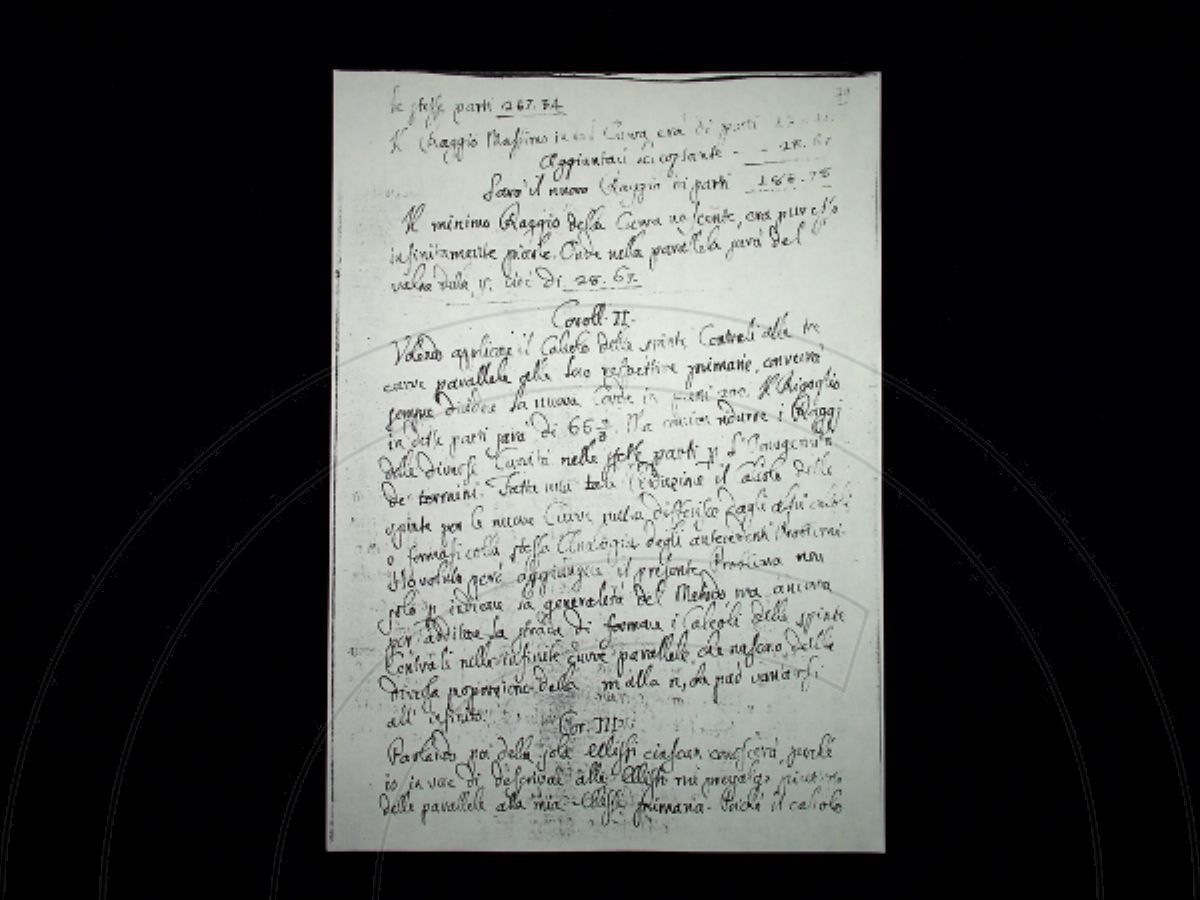 le stesse parti 267.34
Il Raggio Massimo in tal Curva era di parti
Aggiuntavi la costante - - 28.67
Sarà il nuovo Raggio in parti 186.78
Il minimo Raggio della Curva nascente, era pur esso
infinitamente piccolo. Onde nella parallela sarà del
valor della n, cioè di 28.67.
Coroll. II.
Volendo applicare il Calcolo delle spinte Centrali alle tre
curve parallele alle loro respettive primarie, converrà
sempre dividere la nuova Corda in parti 200. Il Rigoglio
in dette parti sarà di 66 2/3. Ma convien ridurre i Raggi
delle diverse Curvità nelle stesse parti p l'Omogeneità
de' termini. Fatta una tale riduzione il Calcolo delle
spinte per le nuove Curve nulla differisce dagli altri calcoli
e formasi colla stessa Analogia degli antecedenti Problemi.
Ho voluto però aggiungere il presente Problema non
solo p indicare la generalità del Metodo ma ancora
per additare la strada di formare i Calcoli delle spinte
Centrali nelle infinite curve parallele che nascono dalla
diversa proporzione della m alla n, che può variarsi
all' infinito.
Cor. III.
Parlando poi della sola Ellissi ciascun conoscerà, perchè
io in vece di descrivere altre Ellissi mi prevalgo piuttosto
delle parallele alla mia Ellissi primaria. Poichè il calcolo